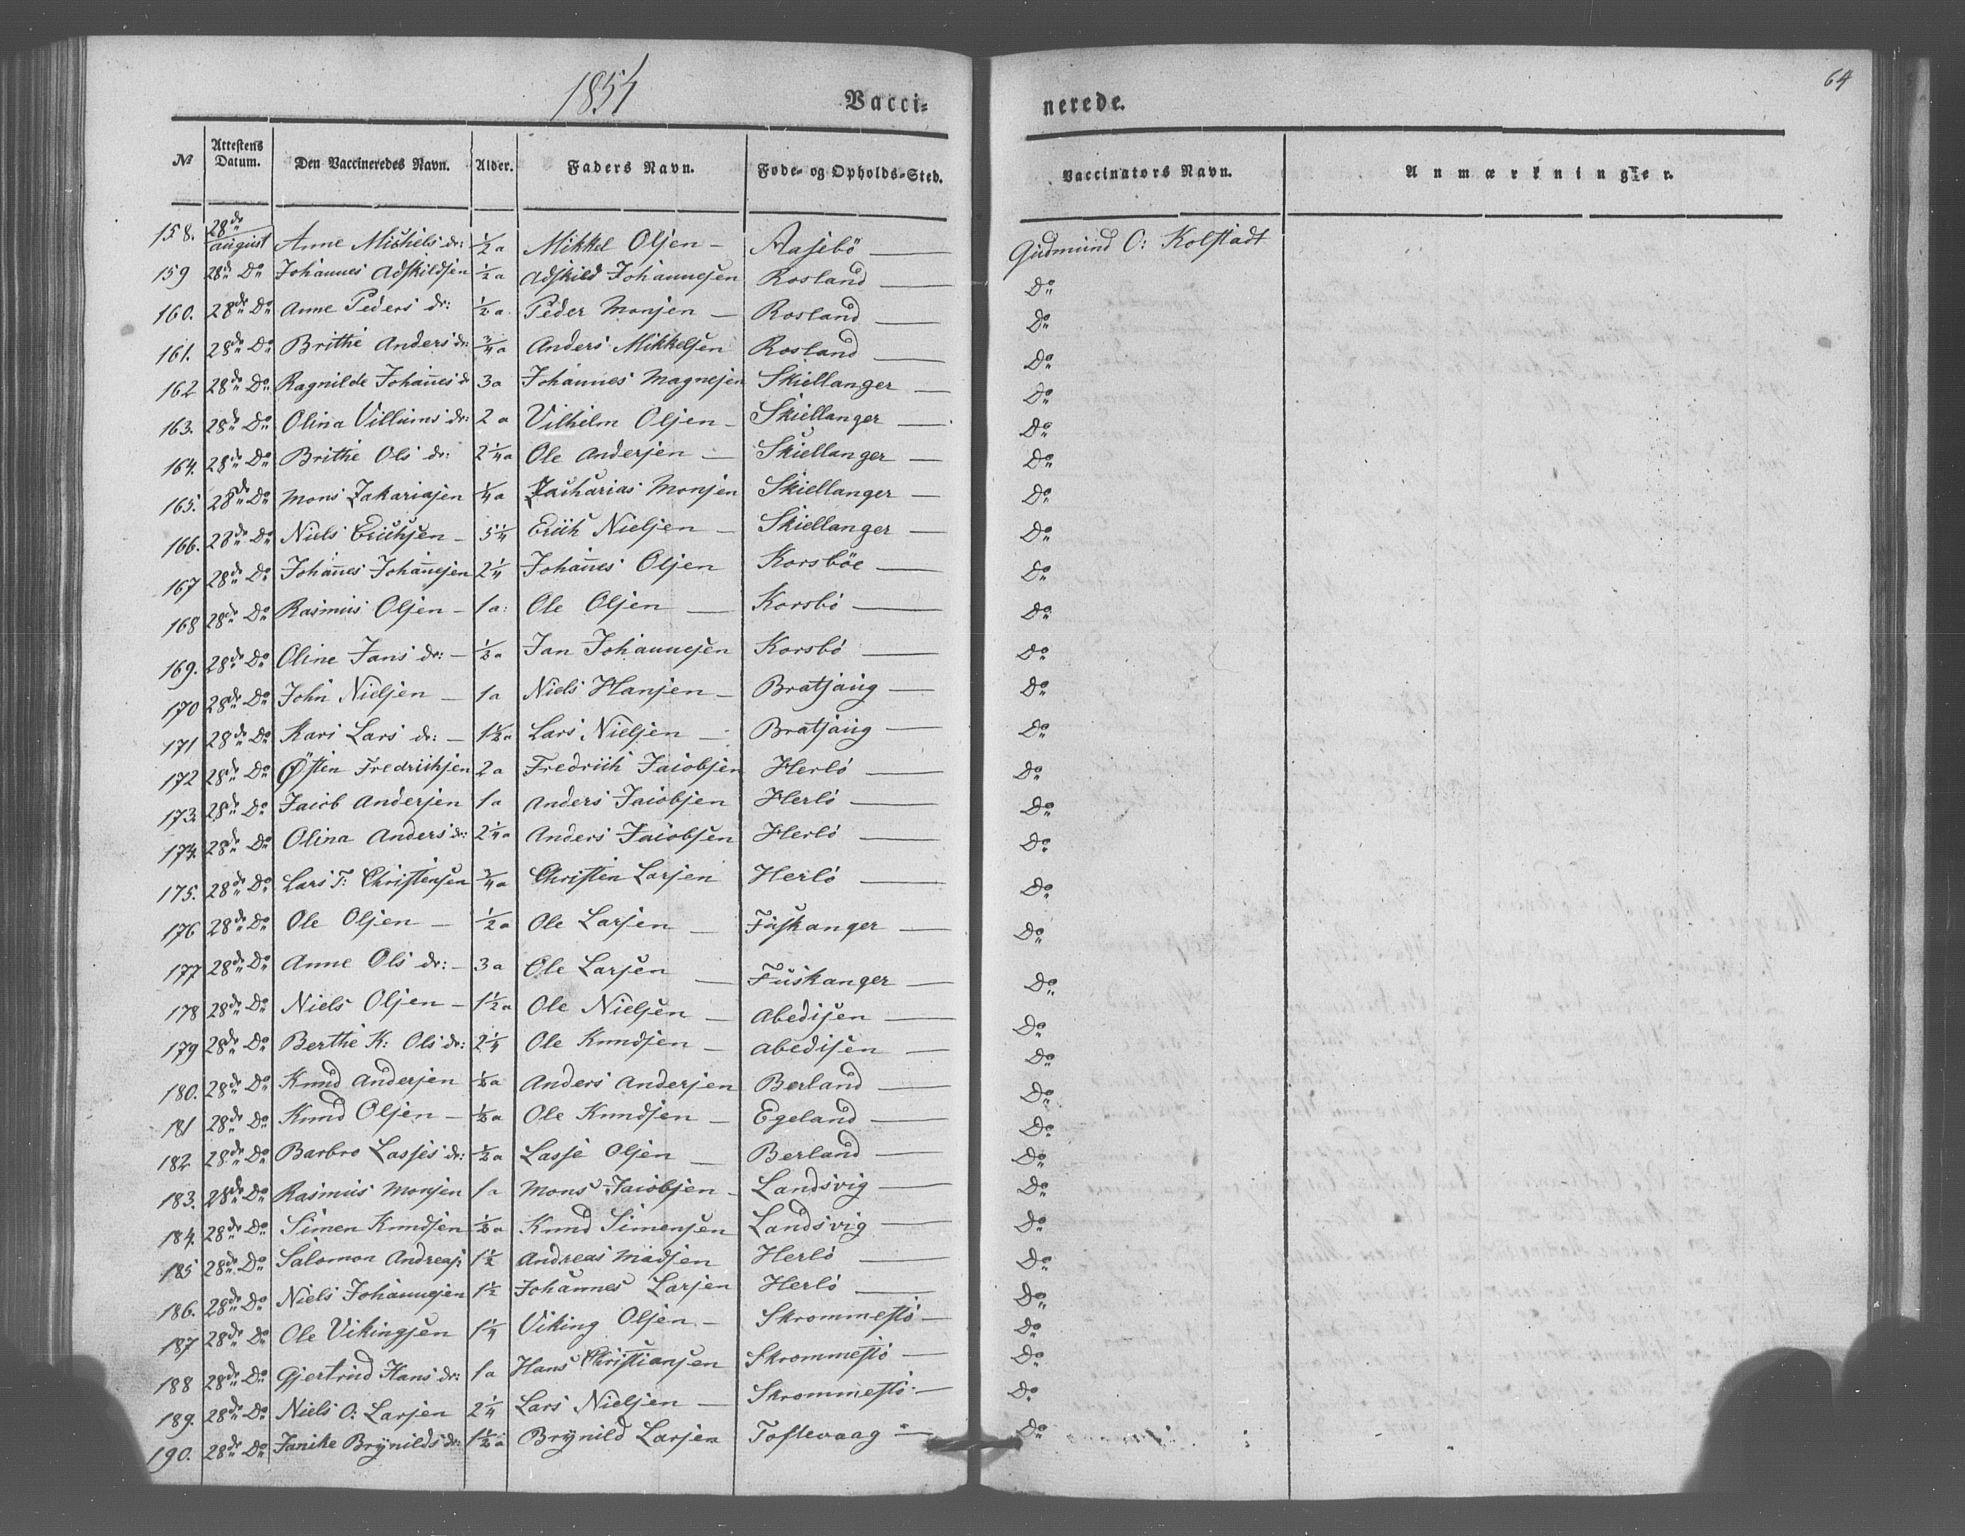 1854
Vacci-
nerede.
64
No Attestens Datum. Den Vaccineredes Navn. Alder. Faders Navn. Føde- og Opholds-Sted. Vaccinators Navn. Anmærkninger.
158. 28de august Anne Michels dr: 1/2 a Mikkel Olsen – Aasebö — Gudmund O: Kolstadt
159 28de Do Johannes Adskildsen 1/2 a Adskild Johannesen Rosland — Do
160. 28de Do Anne Peders dr: 1/2 a. Peder Monsen – Rosland — Do
161. 28de Do Brithe Anders dr: 3/4 a Anders Mikkelsen Rosland — Do
162 28de Do Ragnilde Johañes d 3 a Johannes Magnesen Skiellanger — Do
163. 28de Do Olina Villums dr: 2 a Vilhelm Olsen – Skiellanger — Do
164. 28de Do Brithe Ols dr: 2 1/4 a Ole Andersen – Skiellanger — Do
165. 28de Do Mons Zakariasen 1/4 a Zacharias Monsen Skiellanger — Do
166. 28de Do Niels Erichsen – 5 1/4 Erich Nielsen – Skiellanger — Do
167 28de Do Johañes Johañesen 2 1/4 Johañes Olsen Korsböe — Do
168 28de Do Rasmus Olsen – 1 a: Ole Olsen — Korsbö — Do
169. 28de Do Oline Jans dr: – 1/2 a Jan Johannesen Korsbö — Do
170 28de Do John Nielsen – 1 a Niels Hansen – Bratsaug — Do
171 28de Do Kari Lars dr: – 1 1/2 a Lars Nielsen – Bratsaug — Do
172 28de Do Østen Fredrichsen 2 a Fredrich Jacobsen Herlö — Do
173. 28de Do Jacob Andersen 1 a Anders Jacobsen Herlö — Do
174. 28de Do Olina Anders dr: 2 1/4 a Anders Jacobsen Herlö — Do
175. 28de Do Lars T: Christensen 3/4 a Christen Larsen Herlö — Do
176 28de Do Ole Olsen – 1/2 a Ole Larsen – Fuskanger — Do
177 28de Do Anne Ols dr: – 3 a Ole Larsen — Fuskanger — Do
178 28de Do Niels Olsen – 1 1/2 a Ole Nielsen – Abedisen — Do
179 28de Do Berthe K: Ols dr: 2 1/4 Ole Knudsen – Abedisen — Do
180. 28de Do Knud Andersen 1/2 a Anders Andersen Berland — Do
181 28de Do Knud Olsen – 1/2 a Ole Knudsen – Egeland — Do
182 28de Do Barbro Lasses dr: 1/2 a Lasse Olsen – Berland — Do
183. 28de Do Rasmus Monsen 1 a Mons Jacobsen – Landsvig — Do
184. 28de Do Simen Knudsen 1/2 a Knud Simensen Landsvig — Do
185 28de Do Salomon Andreas: 1 1/2 Andreas Madsen Herlö — Do
186. 28de Do Niels Johannesen 1 1/2 Johannes Larsen Herlö — Do
187 28de Do Ole Vikingsen 1 1/4 Viking Olsen. – Skrommestö — Do
188 28de Do Gjertrud Hans dr: 1 a Hans Christiansen Skrommestö — Do
189. 28de Do Niels O: Larsen 2 1/4 Lars Nielsen – Skrommestö — Do
190. 28de Do Janike Brÿnilds dr: 1 1/2 a Brÿnild Larsen Toftevaag — Do